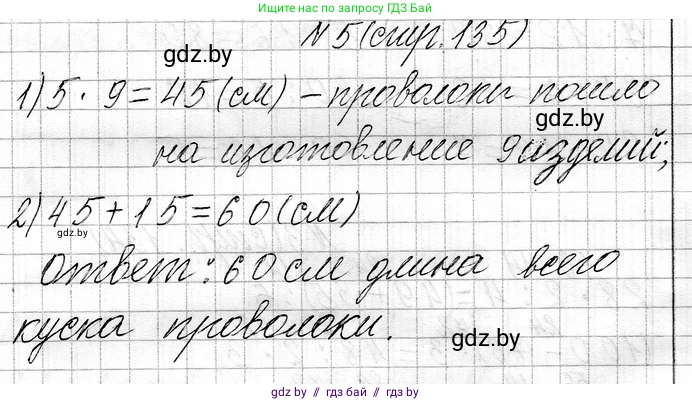 Ищите нас по запросу ГДЗ Бай
N 5 (стр. 135)
gdz.by
1) 5 · 9 = 45 (см) – проволоки пошло
gdz.by
на изготовление 9 изделий;
2) 45 + 15 = 60 (см)
gdz.by
Ответ: 60 см длина всего
куска проволоки.
gdz.by
gdz.by // гдз бай // gdz.by